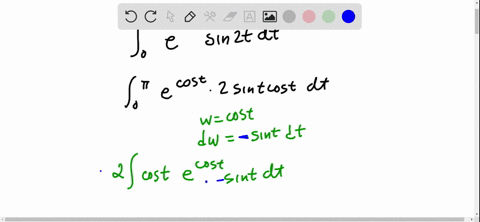 ∫₀ e sin2t dt
∫₀^π e^cost · 2 sint cost dt
w = cost
dw = -sint dt
2∫ cost e^cost · -sint dt